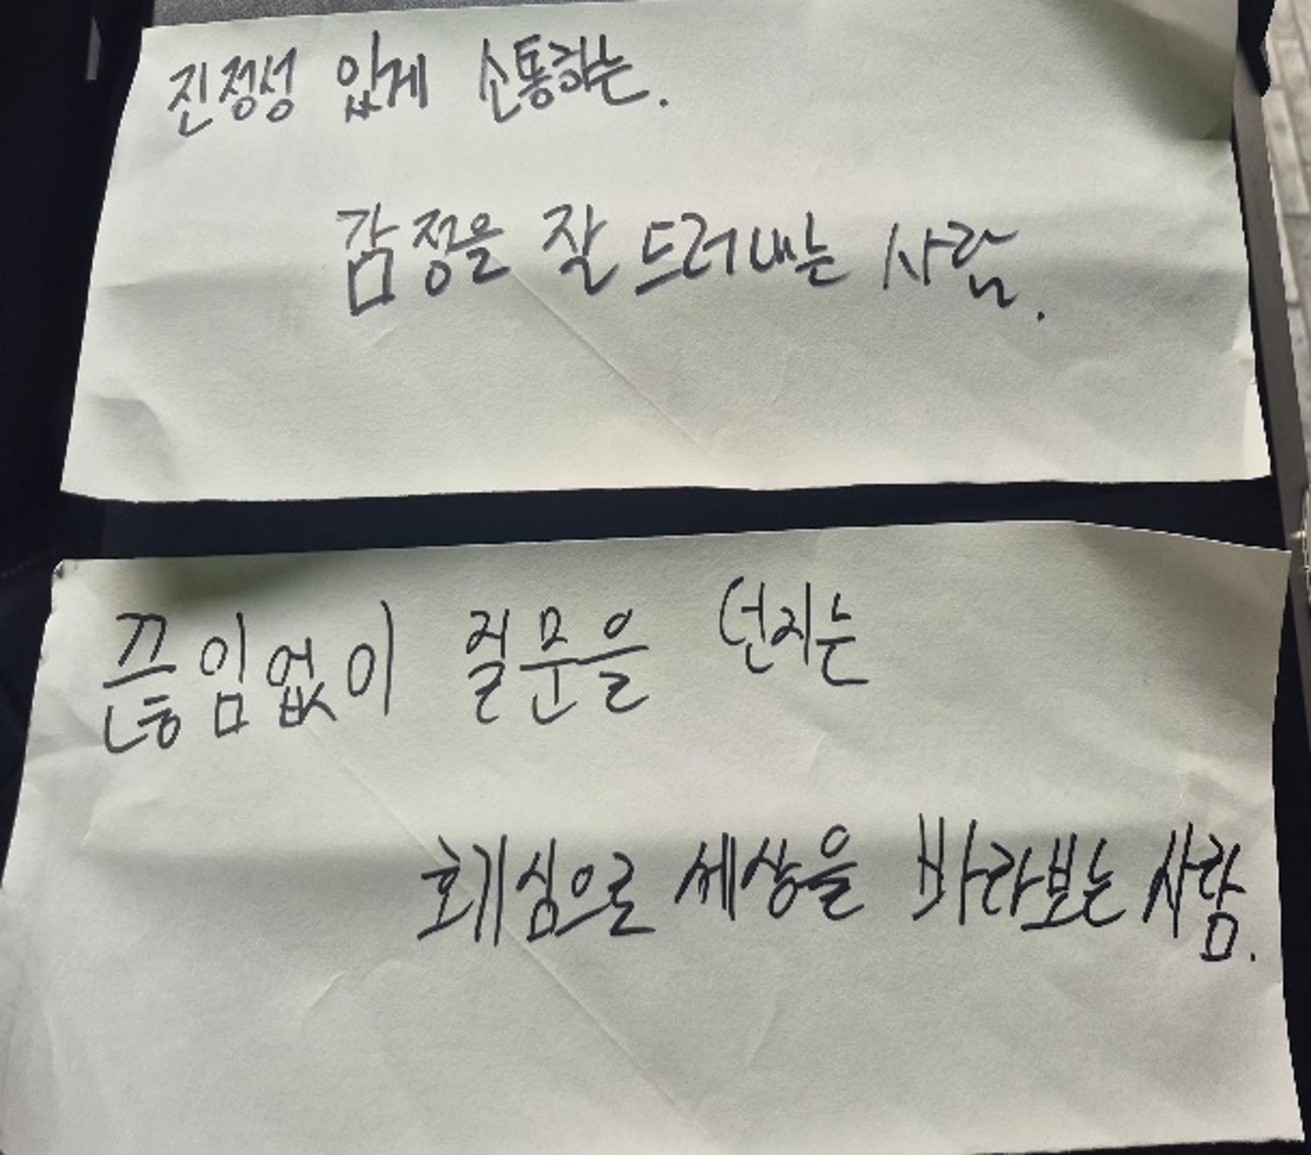 진정성 있게 소통하는.
감정을 잘 드러내는 사람.
끊임없이 질문을 던지는
회심으로 세상을 바라보는 사람.